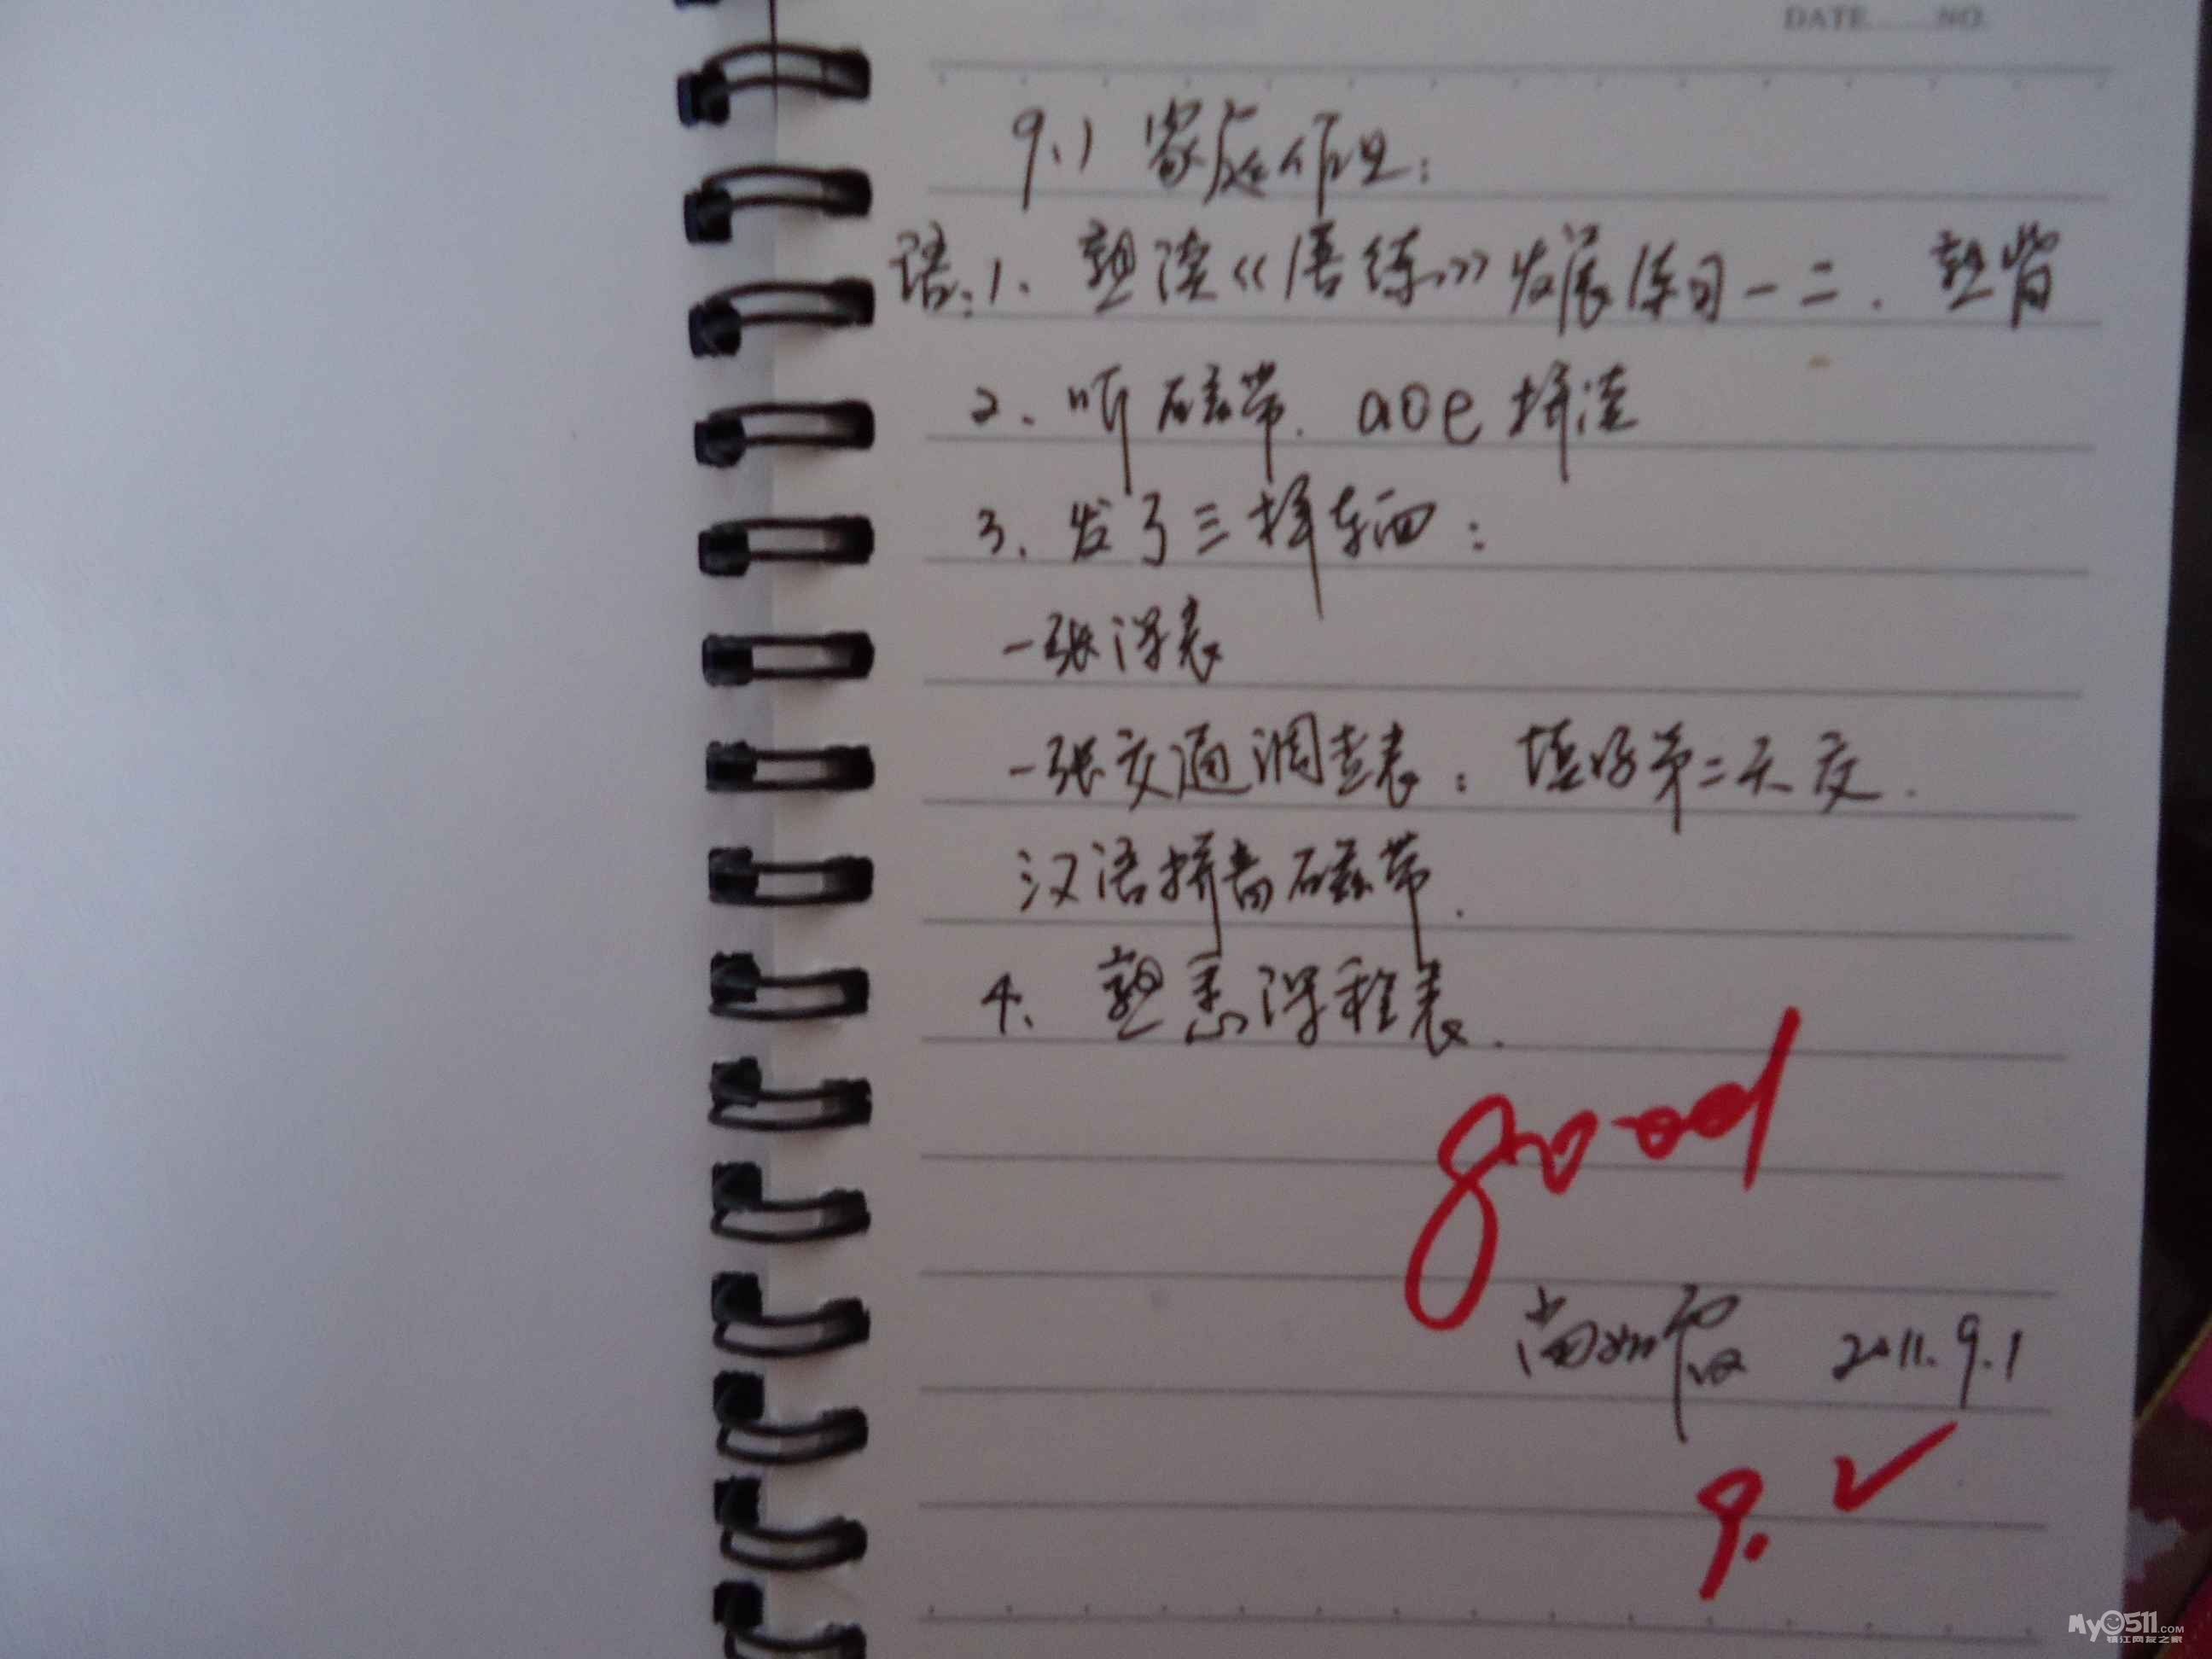 DATE NO
9.1 家庭作业:
语:1、熟读《语练》发展练习一二.熟背
2、听磁带.aoe拼读
3、发了三样东西:
一张课表
一张交通调查表:填好第二天交.
汉语拼音磁带.
4、熟悉课程表.
good
2011.9.1
9.
My0511.COM
镇江网友之家